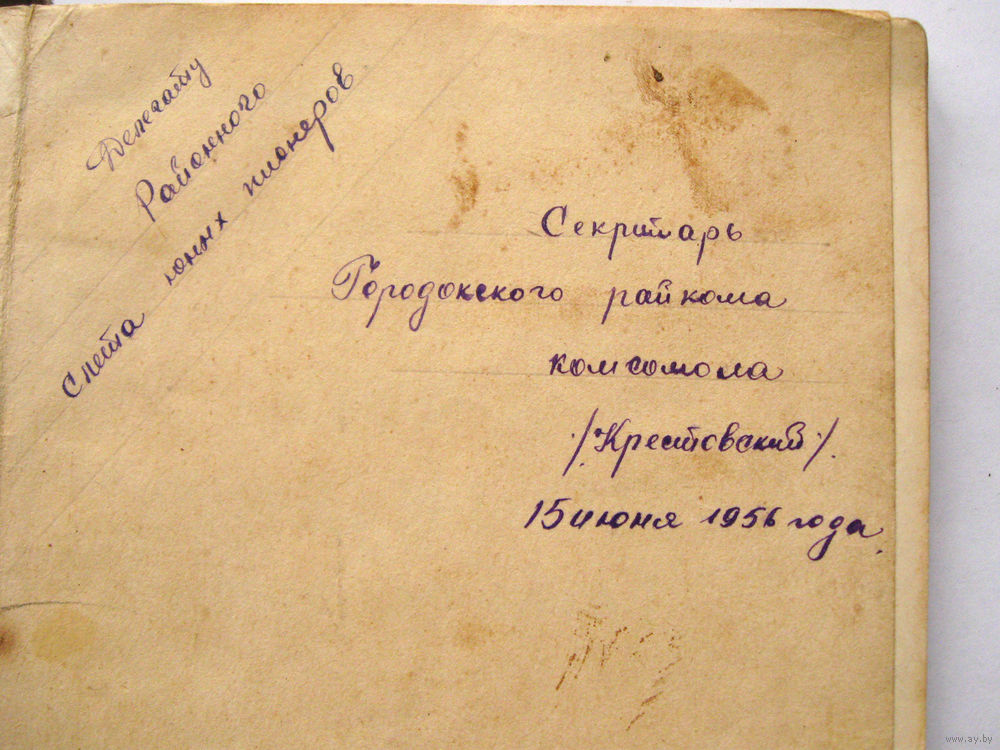 Делегату
Районного
слета юных пионеров
Секритарь
Городокского райкома
комсомола
/Крестовский/.
15 июня 1956 года.
www.ay.by